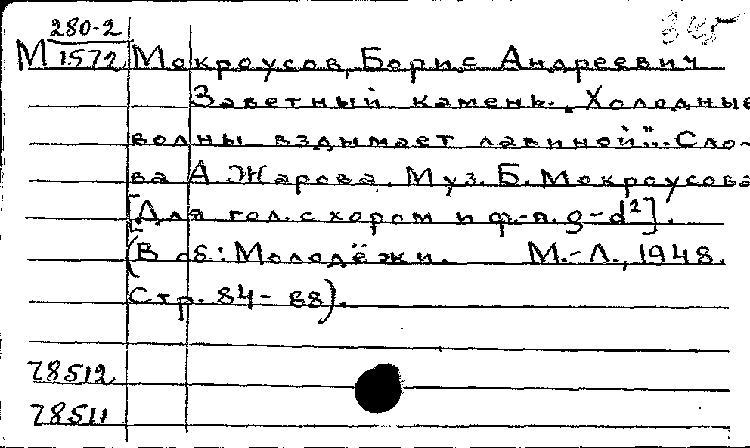 280-2
345
М 1572 Мокроусов, Борис Андреевич
Заветный камень. „Холодные
волны вздымает лавиной"... Сло-
ва А. Жарова. Муз. Б. Мокроусова
[Для гол. с хором и ф-п. g-d²].
(В сб.: Молодёжи. М.-Л., 1948.
Стр. 84-88).
78512
78511